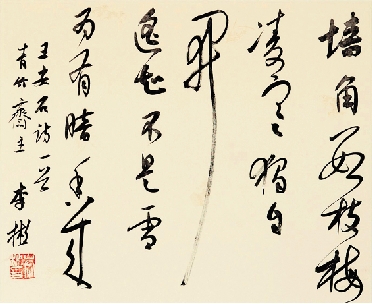 墙角数枝梅
凌寒独自
开
遥知不是雪
为有暗香来
王安石诗一首
青竹斋主 李彬